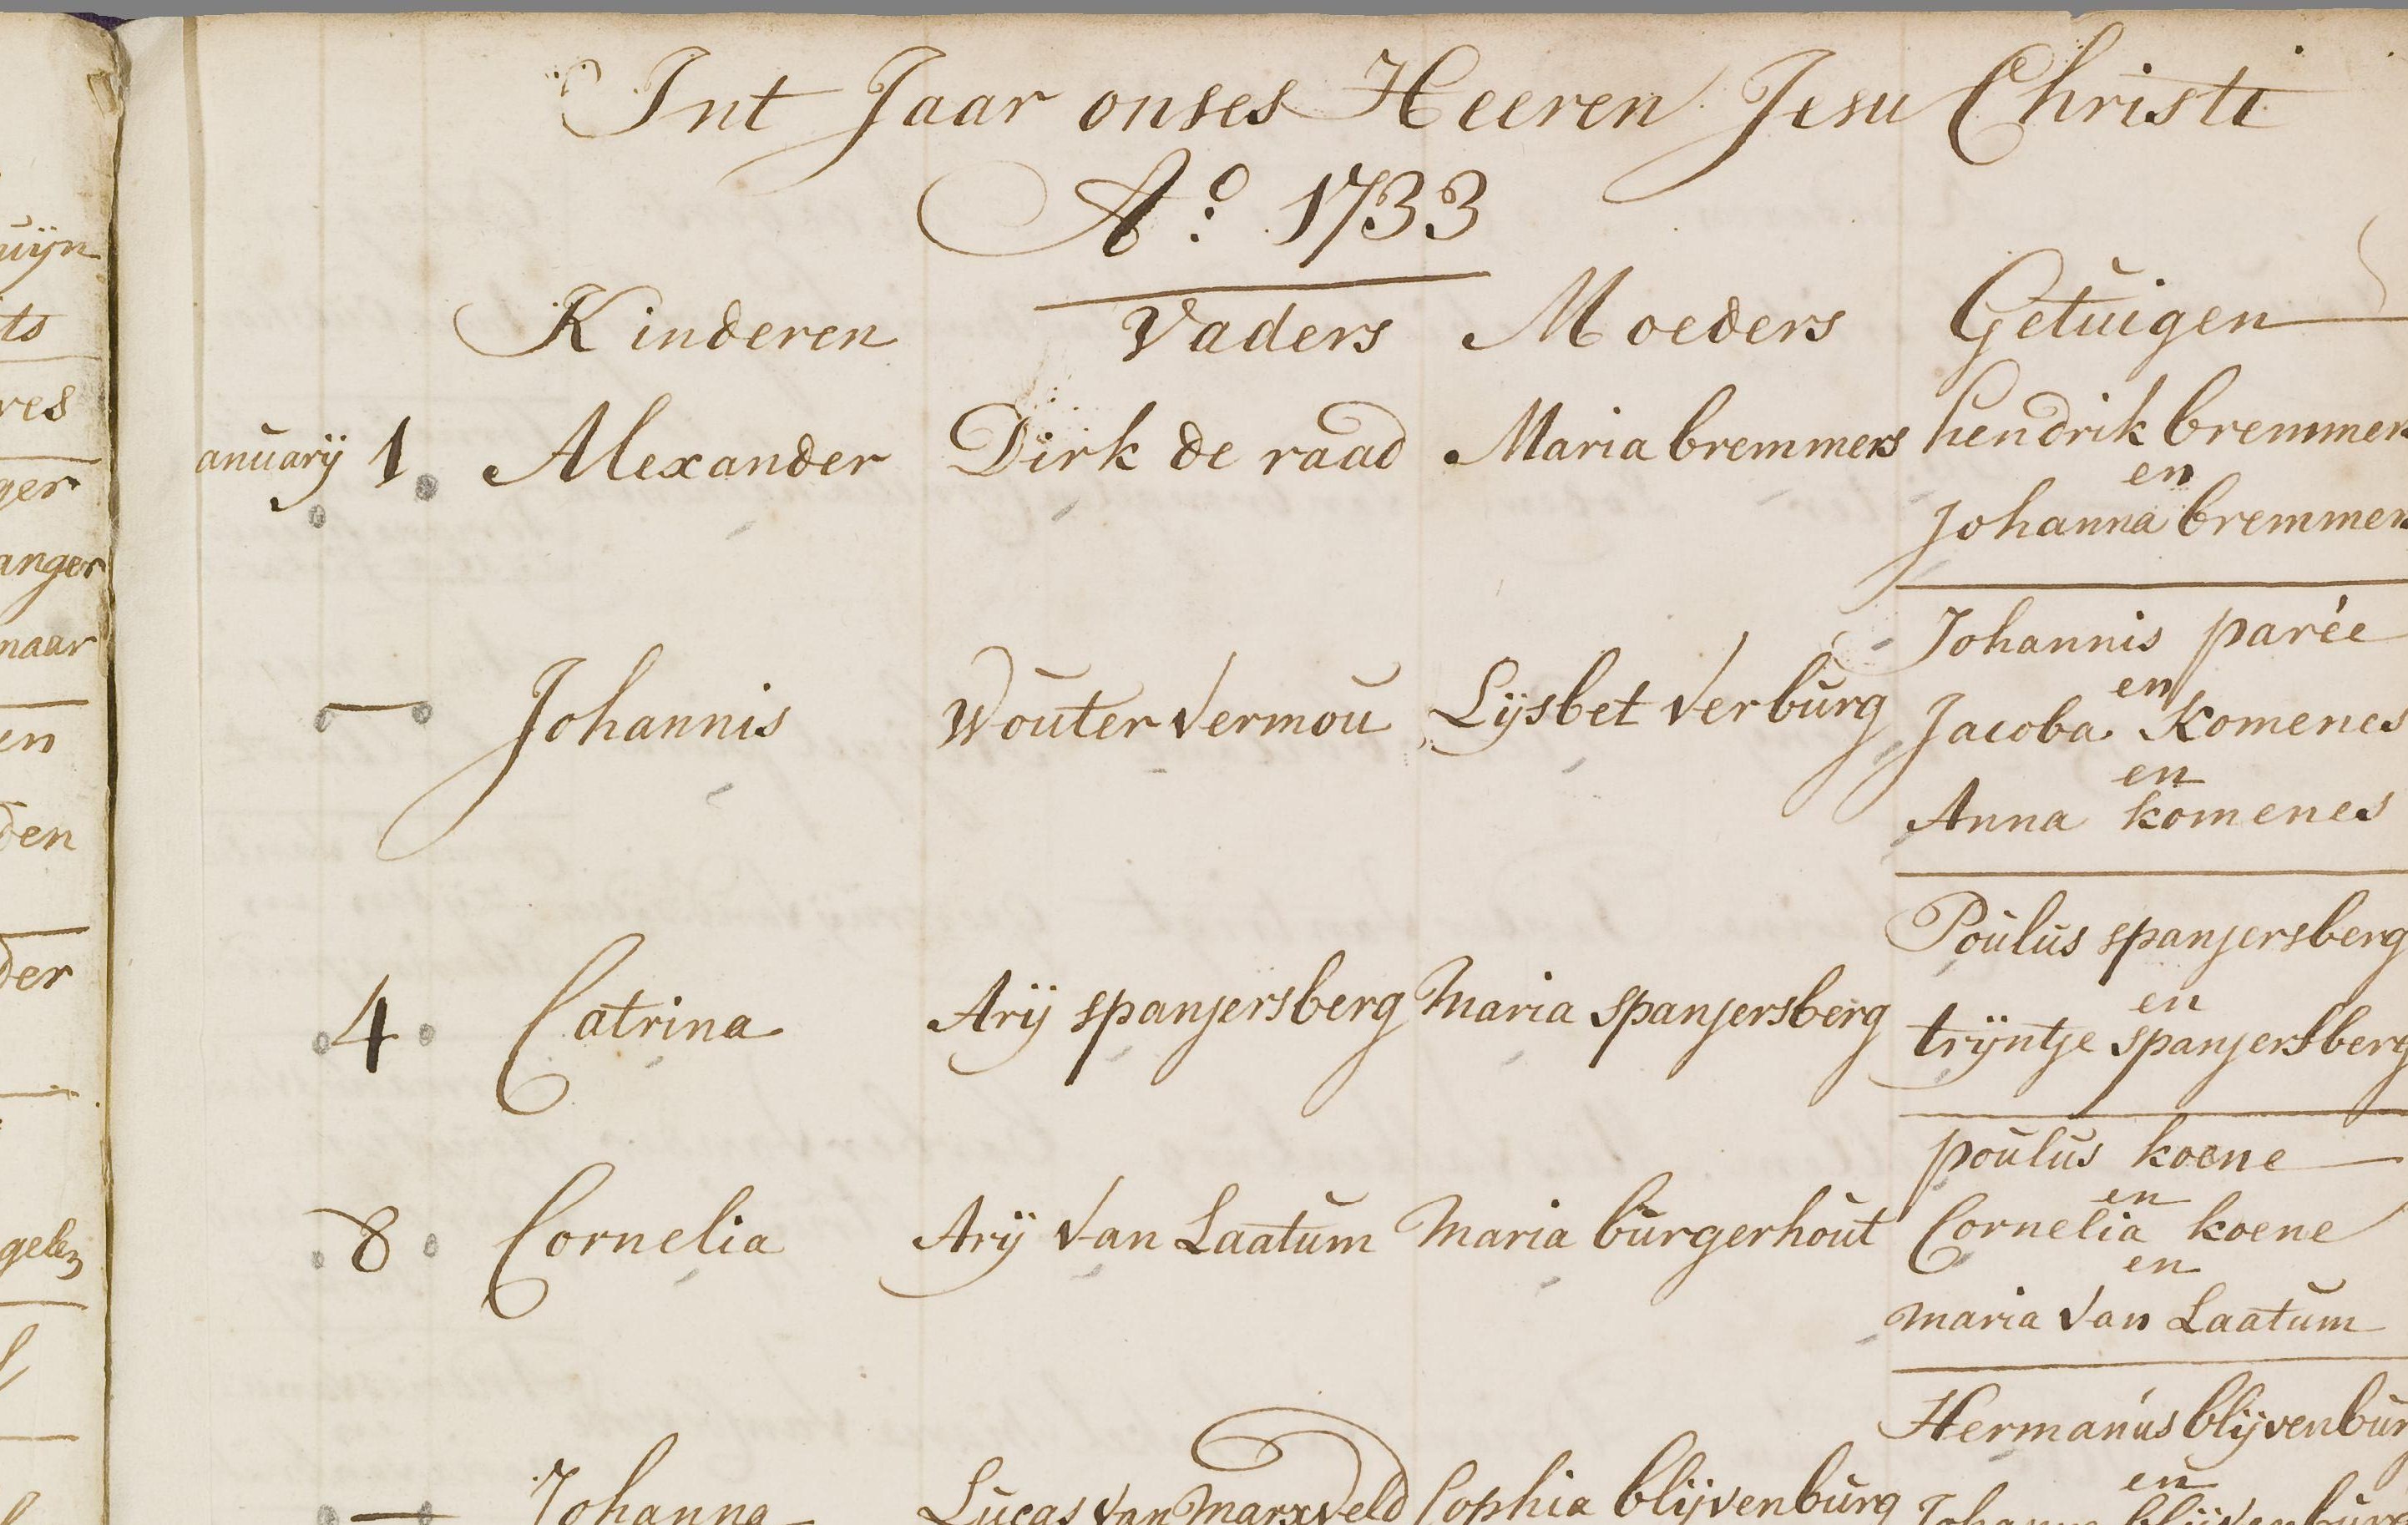 uijn
ts
res
ger
anger
naar
en
den
der
Int Jaar onses Heeren Jesu Christi
Aº: 1733
Kinderen Vaders Moeders Getuigen
anuarij 1 Alexander Dirk de raad Maria bremmers hendrik bremmers
en
Johanna bremmers
Johannis parée
en
— Johannis Wouter Vermou Lijsbet Verburg Jacoba Komenes
en
Anna komenes
Poulus spanjersberg
en
4 Catrina Arij spanjersberg Maria spanjersberg trijntje spanjersberg
poulus koene
en
8 Cornelia Arij Van Laatum Maria burgerhout Cornelia koene
en
maria Van Laatum
Hermanus blijvenbur
en
— Johanna Lucas Van Marxveld Sophia blijvenburg Johanna blijvenburg